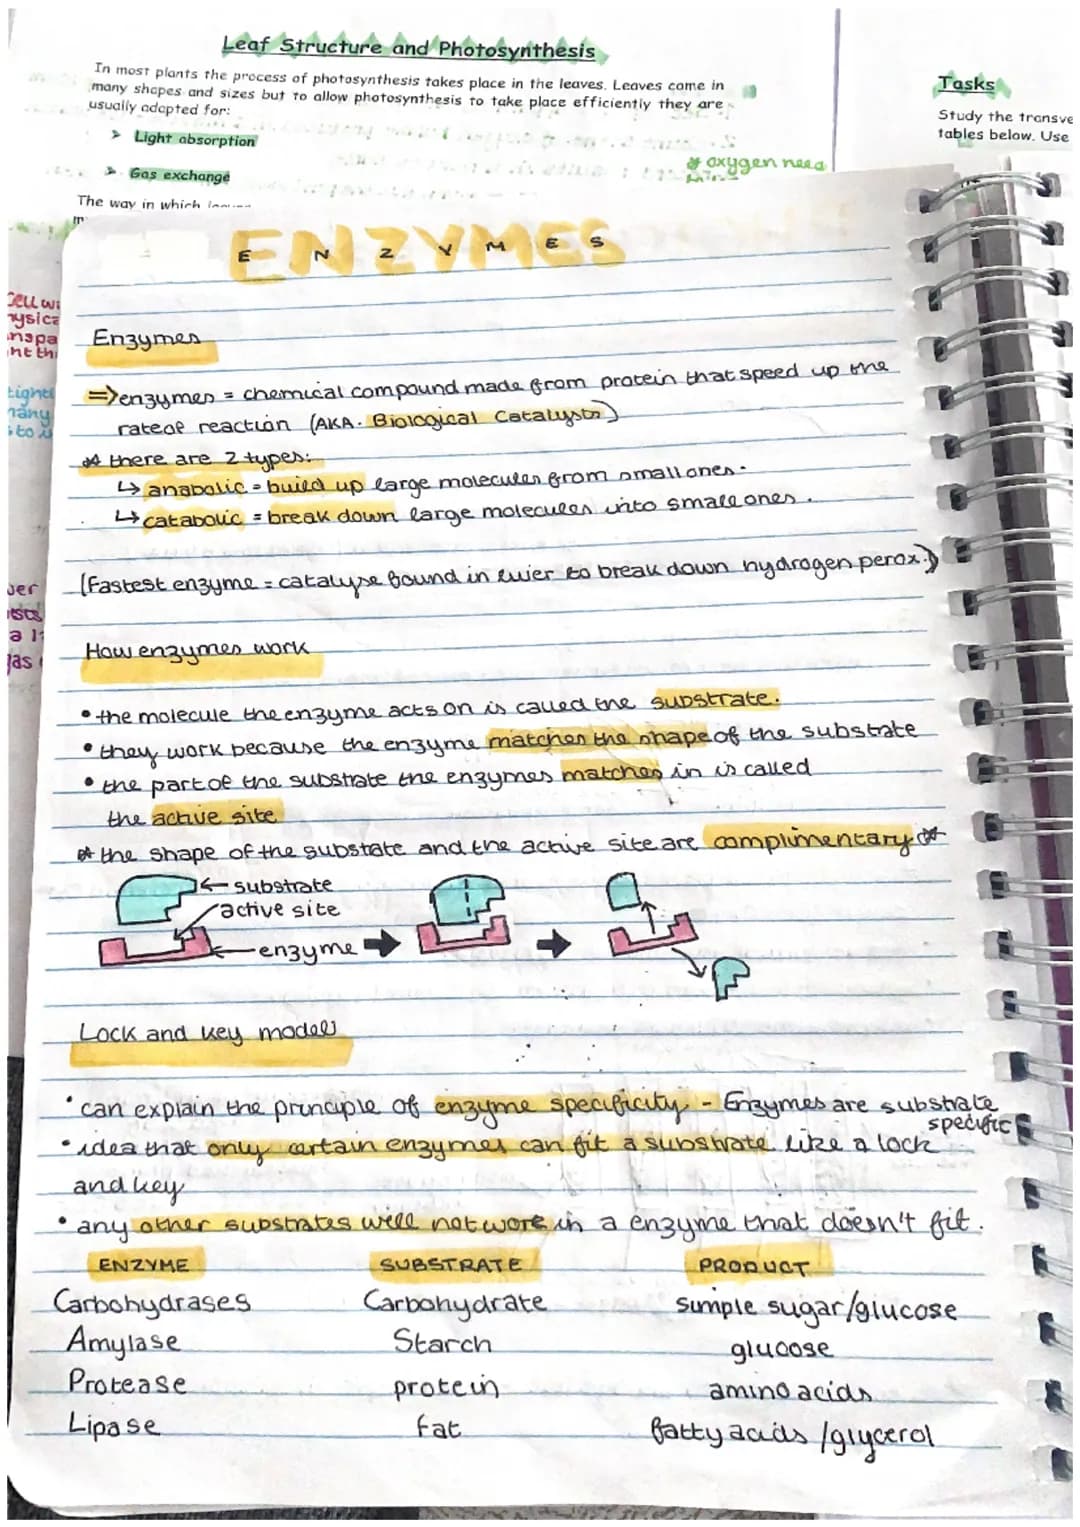 Leaf Structure and Photosynthesis
In most plants the process of photosynthesis takes place in the leaves. Leaves come in
many shapes and sizes but to allow photosynthesis to take place efficiently they are
usually adapted for:
➤ Light absorption
➤ Gas exchange
The way in which
* oxygen need
Tasks
Study the transve
tables below. Use
ENZYMES
E N Z Y M E S
Enzymes
=> enzymes = chemical compound made from protein that speed up the
rate of reaction (AKA. Biological Catalysts)
* there are 2 types:
↳ anabolic = build up large molecules from small ones.
↳ catabolic = break down large molecules into small ones.
(Fastest enzyme = catalyse found in liver to break down hydrogen perox.)
How enzymes work
• the molecule the enzyme acts on is called the substrate.
• they work because the enzyme matches the shape of the substrate
• the part of the substrate the enzymes matches in is called
the active site
* the shape of the substrate and the active site are complimentary *
substrate
active site
enzyme
Lock and key model
• can explain the principle of enzyme specificity - Enzymes are substrate
specific
• idea that only certain enzymes can fit a substrate like a lock
and key
• any other substrates will not work in a enzyme that doesn't fit.
ENZYME SUBSTRATE PRODUCT
Carbohydrases Carbohydrate simple sugar/glucose
Amylase Starch glucose
Protease protein amino acids
Lipase fat fatty acids / glycerol